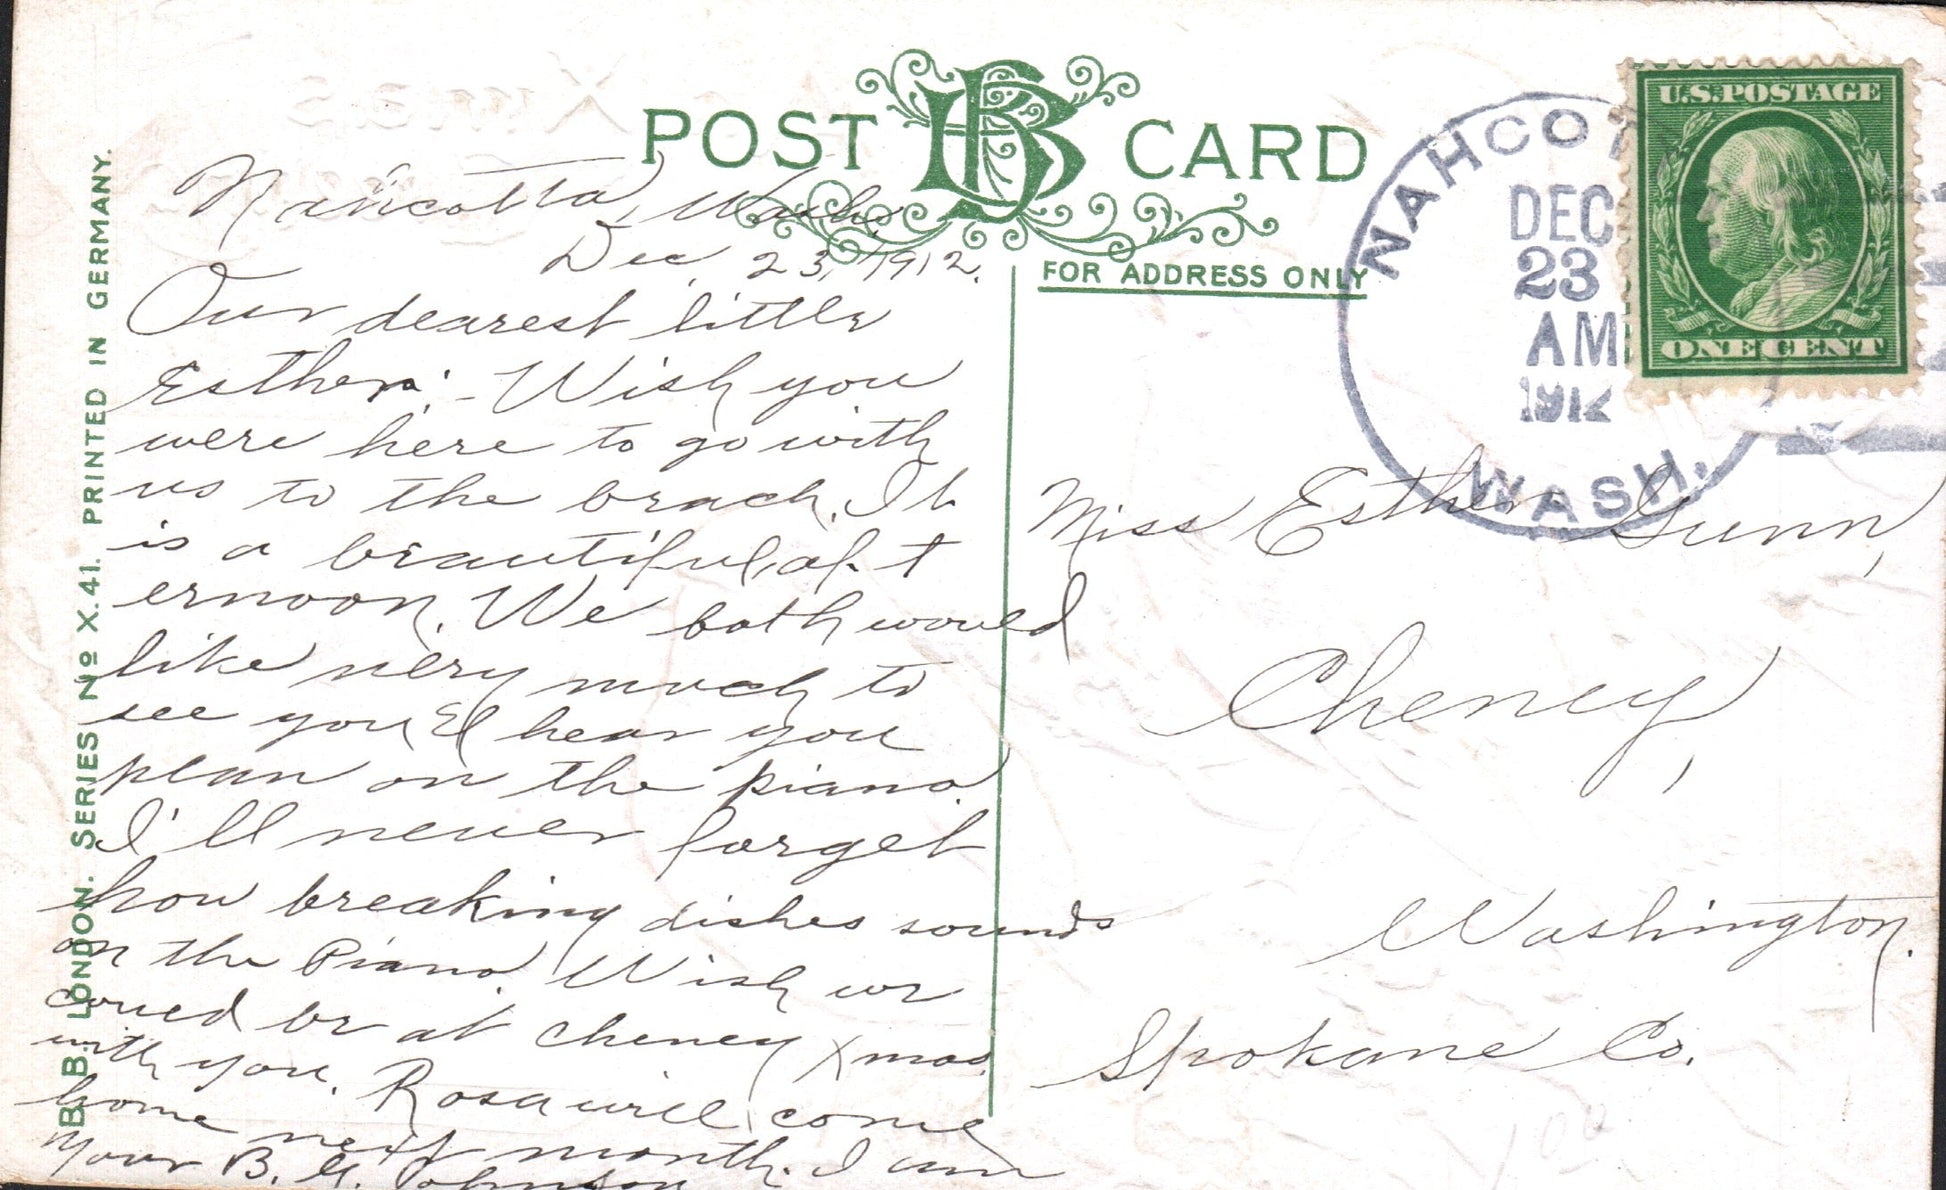 POST CARD
FOR ADDRESS ONLY
B.B. LONDON. SERIES Nº X.41. PRINTED IN GERMANY.
NAHCOT
DEC
23
AM
1912
WASH.
U.S.POSTAGE
ONE CENT
Nahcotta, Wash.
Dec. 23, 1912.
Our dearest little
Esther: - Wish you
were here to go with
us to the beach. It
is a beautiful, aft
ernoon. We both would
like very much to
see you, & hear you
plan on the piano.
I'll never forget
how breaking dishes sounds
on the Piano. Wish we
could be at Cheney Xmas
with you. Rosa will come
home next month. I am
Your B. G. Johnson
Miss Esther Gunn,
Cheney,
Washington.
Spokane Co.